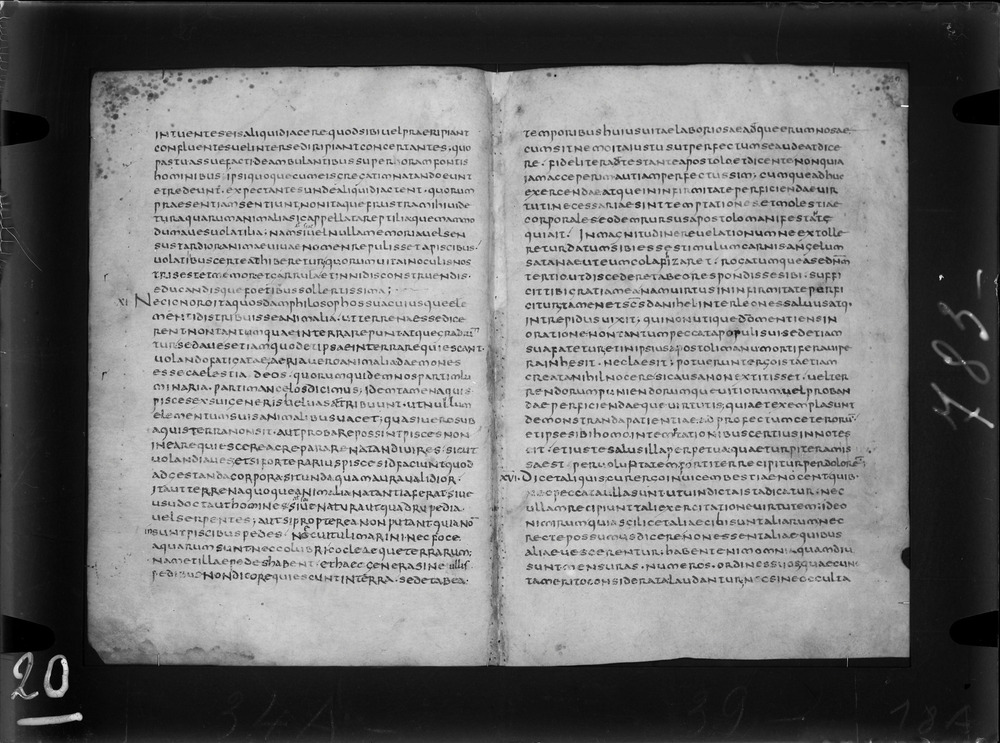 INTUENTES EIS ALIQUID IACERE QUOD SIBI UEL PRAERIPIANT
CONFLUENTES UEL INTER SE DIRIPIANT CONCERTANTES, QUO
PASTU ASSUEFACTI DEAMBULANTIBUS SUPER ORAM FONTIS
HOMINIBUS IPSI QUOQUE CUM EIS GREGATIM NATANDO EUNT
ET REDEUNT. EXPECTANTES UNDE ALIQUID IACTENT. QUORUM
PRAESENTIAM SENTIUNT. NON ITAQUE FRUSTRA MIHI UIDE
TUR AQUARUM ANIMALIA SIC APPELLATA REPTILIA QUEMADMO
DUM AUES UOLATILIA: NAM SI UEL NULLA MEMORIA UEL SEN
SUS TARDIOR ANIMAE UIUAE NOMEN REPULISSET A PISCIBUS.
UOLATIBUS CERTE ADHIBERETUR QUORUM UITA IN OCULIS NOS
TRIS EST ET MEMOR ET GARRULA ET IN NIDIS CONSTRUENDIS.
EDUCANDISQUE FOETIBUS SOLLERTISSIMA;
XI NEC IGNORO ITA QUOSDAM PHILOSOPHOS SUA CUIUSQUE ELE
MENTI DISTRIBUISSE ANIMALIA. UT TERRENA ESSE DICE
RENT NON TANTUM QUAE IN TERRA REPUNT ATQUE GRADIUN
TUR SED AUES ETIAM QUOD ET IPSAE IN TERRA REQUIESCANT
UOLANDO FATIGATAE, AERIA UERO ANIMALIA DAEMONES
ESSE CAELESTIA DEOS. QUORUM QUIDEM NOS PARTIM LU
MINARIA. PARTIM ANGELOS DICIMUS; IDEM TAMEN AQUIS
PISCES EX SUI GENERIS BELUAS ATTRIBUUNT. UT NULLUM
ELEMENTUM SUIS ANIMALIBUS UACET; QUASI UERO SUB
AQUIS TERRA NON SIT. AUT PROBARE POSSINT PISCES NON
IN EA REQUIESCERE AC REPARARE NATANDI UIRES. SICUT
UOLANDI AUES ETSI FORTE RARIUS PISCES ID FACIUNT QUOD
AD GESTANDA CORPORA SIT UNDA QUAM AURA UALIDIOR.
ITA UT TERRENA QUOQUE ANIMALIA NATANTIA FERAT SIUE
USU DOCTA UT HOMINES SIUE NATURA UT QUADRUPEDIA
UEL SERPENTES; AUT SI PROPTEREA NON PUTANT QUIA NON
SUNT PISCIBUS PEDES NEC UITULI MARINI NEC FOCE
AQUARUM SUNT NEC COLUBRI COCLEAEQUE TERRARUM;
NAM ET ILLAE PEDES HABENT. ET HAEC GENERA SINE ULLIS
PEDIBUS NON DICO REQUIESCUNT IN TERRA. SED ET AB EA
TEMPORIBUS HUIUS UITAE LABORIOSAE ADQUE ERUMNOSAE
CUM SIT NEMO ITA IUSTUS UT PERFECTUM SE AUDEAT DICE
RE. FIDELITER ADTESTANTE APOSTOLO ET DICENTE NON QUIA
IAM ACCEPERIM AUT IAM PERFECTUS SIM; CUMQUE ADHUC
EXERCENDAE ATQUE IN INFIRMITATE PERFICIENDAE UIR
TUTI NECESSARIAE SINT TEMPTATIONES ET MOLESTIAE
CORPORALES EODEM RURSUS APOSTOLO MANIFESTANTE
QUI AIT. IN MAGNITUDINE REUELATIONUM NE EXTOLLE
RETUR DATUM SIBI ESSE STIMULUM CARNIS ANGELUM
SATANAE UT EUM COLAFIZARET. ROGATUMQUE A SE DNM
TERTIO UT DISCEDERET AB EO RESPONDISSE SIBI. SUFFI
CIT TIBI GRATIA MEA NAM UIRTUS IN INFIRMITATE PERFI
CITUR TAMEN ET SCS DANIHEL INTER LEONES SALUUS ATQ
INTREPIDUS UIXIT. QUI NON UTIQUE DO MENTIENS IN
ORATIONE NON TANTUM PECCATA POPULI SUI SED ETIAM
SUA FATETUR ET IN IPSIUS APOSTOLI MANU MORTIFERA UIPE
RA INHESIT. NEC LAESIT; POTUERUNT ERGO ISTA ETIAM
CREATA NIHIL NOCERE SI CAUSA NON EXTITISSET. UEL TER
RENDORUM PUNIENDORUMQUE UITIORUM UEL PROBAN
DAE PERFICIENDAEQUE UIRTUTIS; QUIA ET EXEMPLA SUNT
DEMONSTRANDA PATIENTIAE. AD PROFECTUM CETERORUM
ET IPSE SIBI HOMO IN TEMPTATIONIBUS CERTIUS INNOTES
CIT. ET IUSTE SALUS ILLA PERPETUA QUAE TURPITER AMIS
SA EST PER UOLUPTATEM FORTITER RECIPITUR PER DOLOREM;
XVI. DICET ALIQUIS, CUR ERGO INUICEM BESTIAE NOCENT QUIB
NEC PECCATA ULLA SUNT UT UINDICTA ISTA DICATUR. NEC
ULLAM RECIPIUNT TALI EXERCITATIONE UIRTUTEM; IDEO
NIMIRUM QUIA SCILICET ALIAE CIBI SUNT ALIARUM NEC
RECTE POSSUMUS DICERE NON ESSENT ALIAE QUIBUS
ALIAE UESCERENTUR; HABENT ENIM OMNIA QUAMDIU
SUNT MENSURAS. NUMEROS. ORDINES SUOS QUAE CUN
TA MERITO CONSIDERATA LAUDANTUR, NEC SINE OCCULTA
20
783-